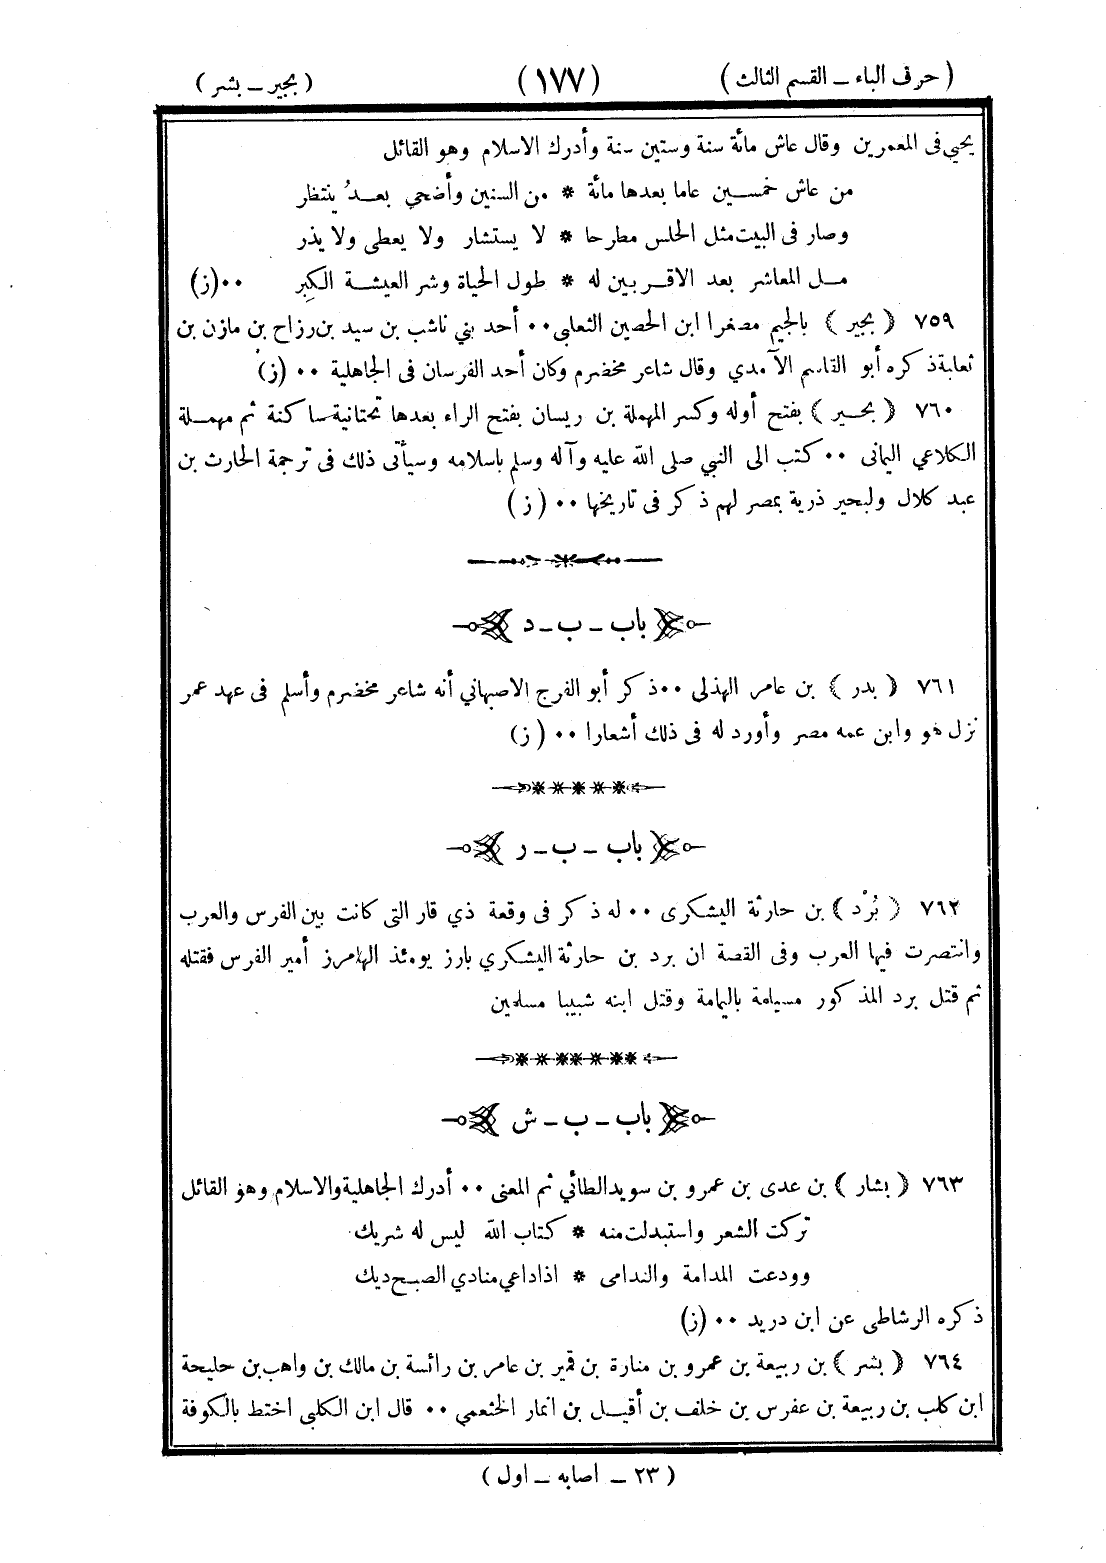 ( حرف الباء ــ القسم الثالث ) (١٧٧) ( بجير ــ بشر )
يحيي فى المعمرين وقال عاش مائة سنة وستين سنة وأدرك الاسلام وهو القائل
من عاش خمسين عاما بعدها مائة * من السنين وأضحي بعدُ ينتظر
وصار فى البيت مثل الحلس مطرحا * لا يستشار ولا يعطى ولا يذر
مل المعاشر بعد الاقربين له * طول الحياة وشر العيشة الكِبر ٠٠ (ز)
٧٥٩ ( بجير ) بالجيم مصغرا ابن الحصين الثعلبي ٠٠ أحد بني ناشب بن سيد بن رزاح بن مازن بن
ثعلبة ذكره أبو القاسم الآمدي وقال شاعر مخضرم وكان أحد الفرسان فى الجاهلية ٠٠ (ز)
٧٦٠ ( بحير ) بفتح أوله وكسر المهملة بن ريسان بفتح الراء بعدها تحتانية ساكنة ثم مهملة
الكلاعي اليمانى ٠٠ كتب الى النبي صلى الله عليه وآله وسلم باسلامه وسيأتى ذلك فى ترجمة الحارث بن
عبد كلال ولبحير ذرية بمصر لهم ذكر فى تاريخها ٠٠ ( ز )
باب ـ ب ـ د
٧٦١ ( بدر ) بن عامر الهذلى ٠٠ ذكر أبو الفرج الاصبهاني أنه شاعر مخضرم وأسلم فى عهد عمر
نزل هو وابن عمه مصر وأورد له فى ذلك أشعارا ٠٠ ( ز)
باب ـ ب ـ ر
٧٦٢ ( بُرْد ) بن حارثة اليشكرى ٠٠ له ذكر فى وقعة ذي قار التى كانت بين الفرس والعرب
وانتصرت فيها العرب وفى القصة ان برد بن حارثة اليشكري بارز يومئذ الهامرز أمير الفرس فقتله
ثم قتل برد المذكور مسيلمة باليمامة وقتل ابنه شبيبا مسلمين
باب ـ ب ـ ش
٧٦٣ ( بشار ) بن عدى بن عمرو بن سويد الطائي ثم المعنى ٠٠ أدرك الجاهلية والاسلام وهو القائل
تركت الشعر واستبدلت منه * كتاب الله ليس له شريك
وودعت المدامة والندامى * اذا داعي منادي الصبح ديك
ذكره الرشاطى عن ابن دريد ٠٠ (ز)
٧٦٤ ( بشر ) بن ربيعة بن عمرو بن منارة بن قمير بن عامر بن رائسة بن مالك بن واهب بن حليحة
ابن كلب بن ربيعة بن عفرس بن خلف بن أقيل بن انمار الخثعمي ٠٠ قال ابن الكلبي اختط بالكوفة
( ٢٣ ــ اصابه ــ اول )